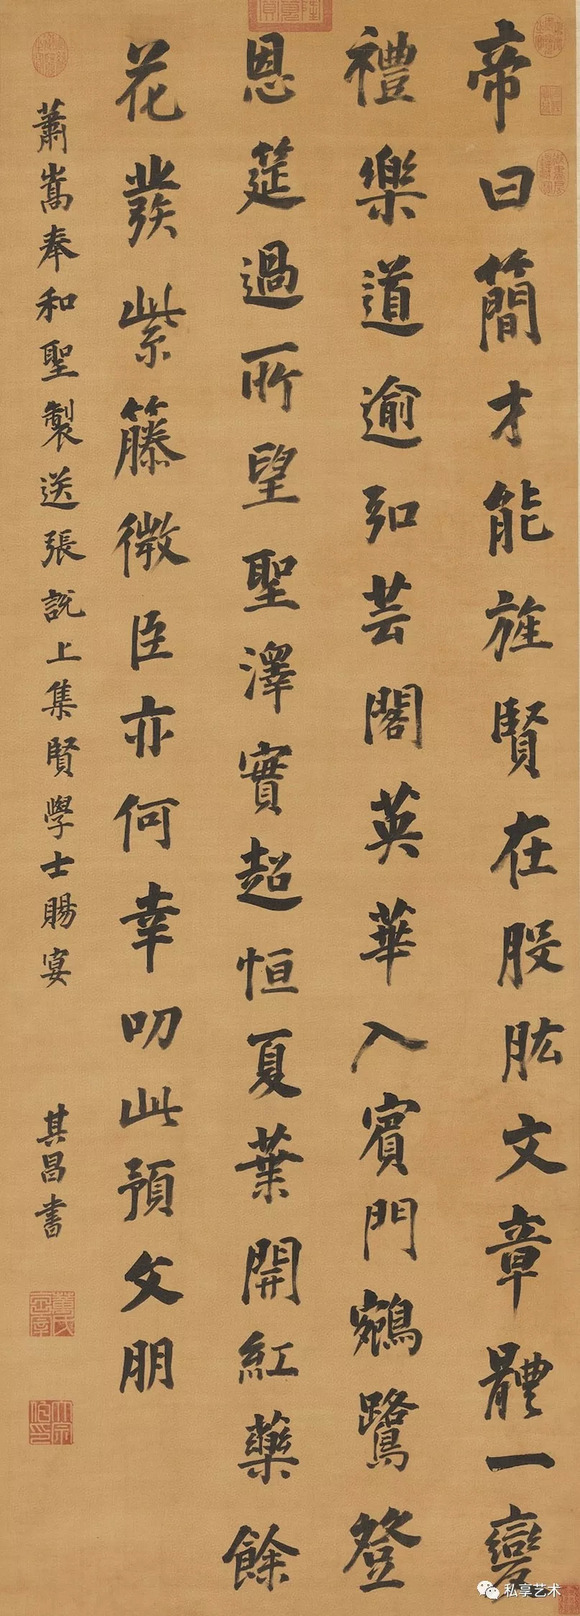 帝曰簡才能旌賢在股肱文章體一變
禮樂道逾弘芸閣英華入賓門鵷鷺登
恩筵過所望聖澤實超恒夏葉開紅藥餘
花發紫藤微臣亦何幸叨此預文朋
蕭嵩奉和聖製送張說上集賢學士賜宴
其昌書
私享艺术